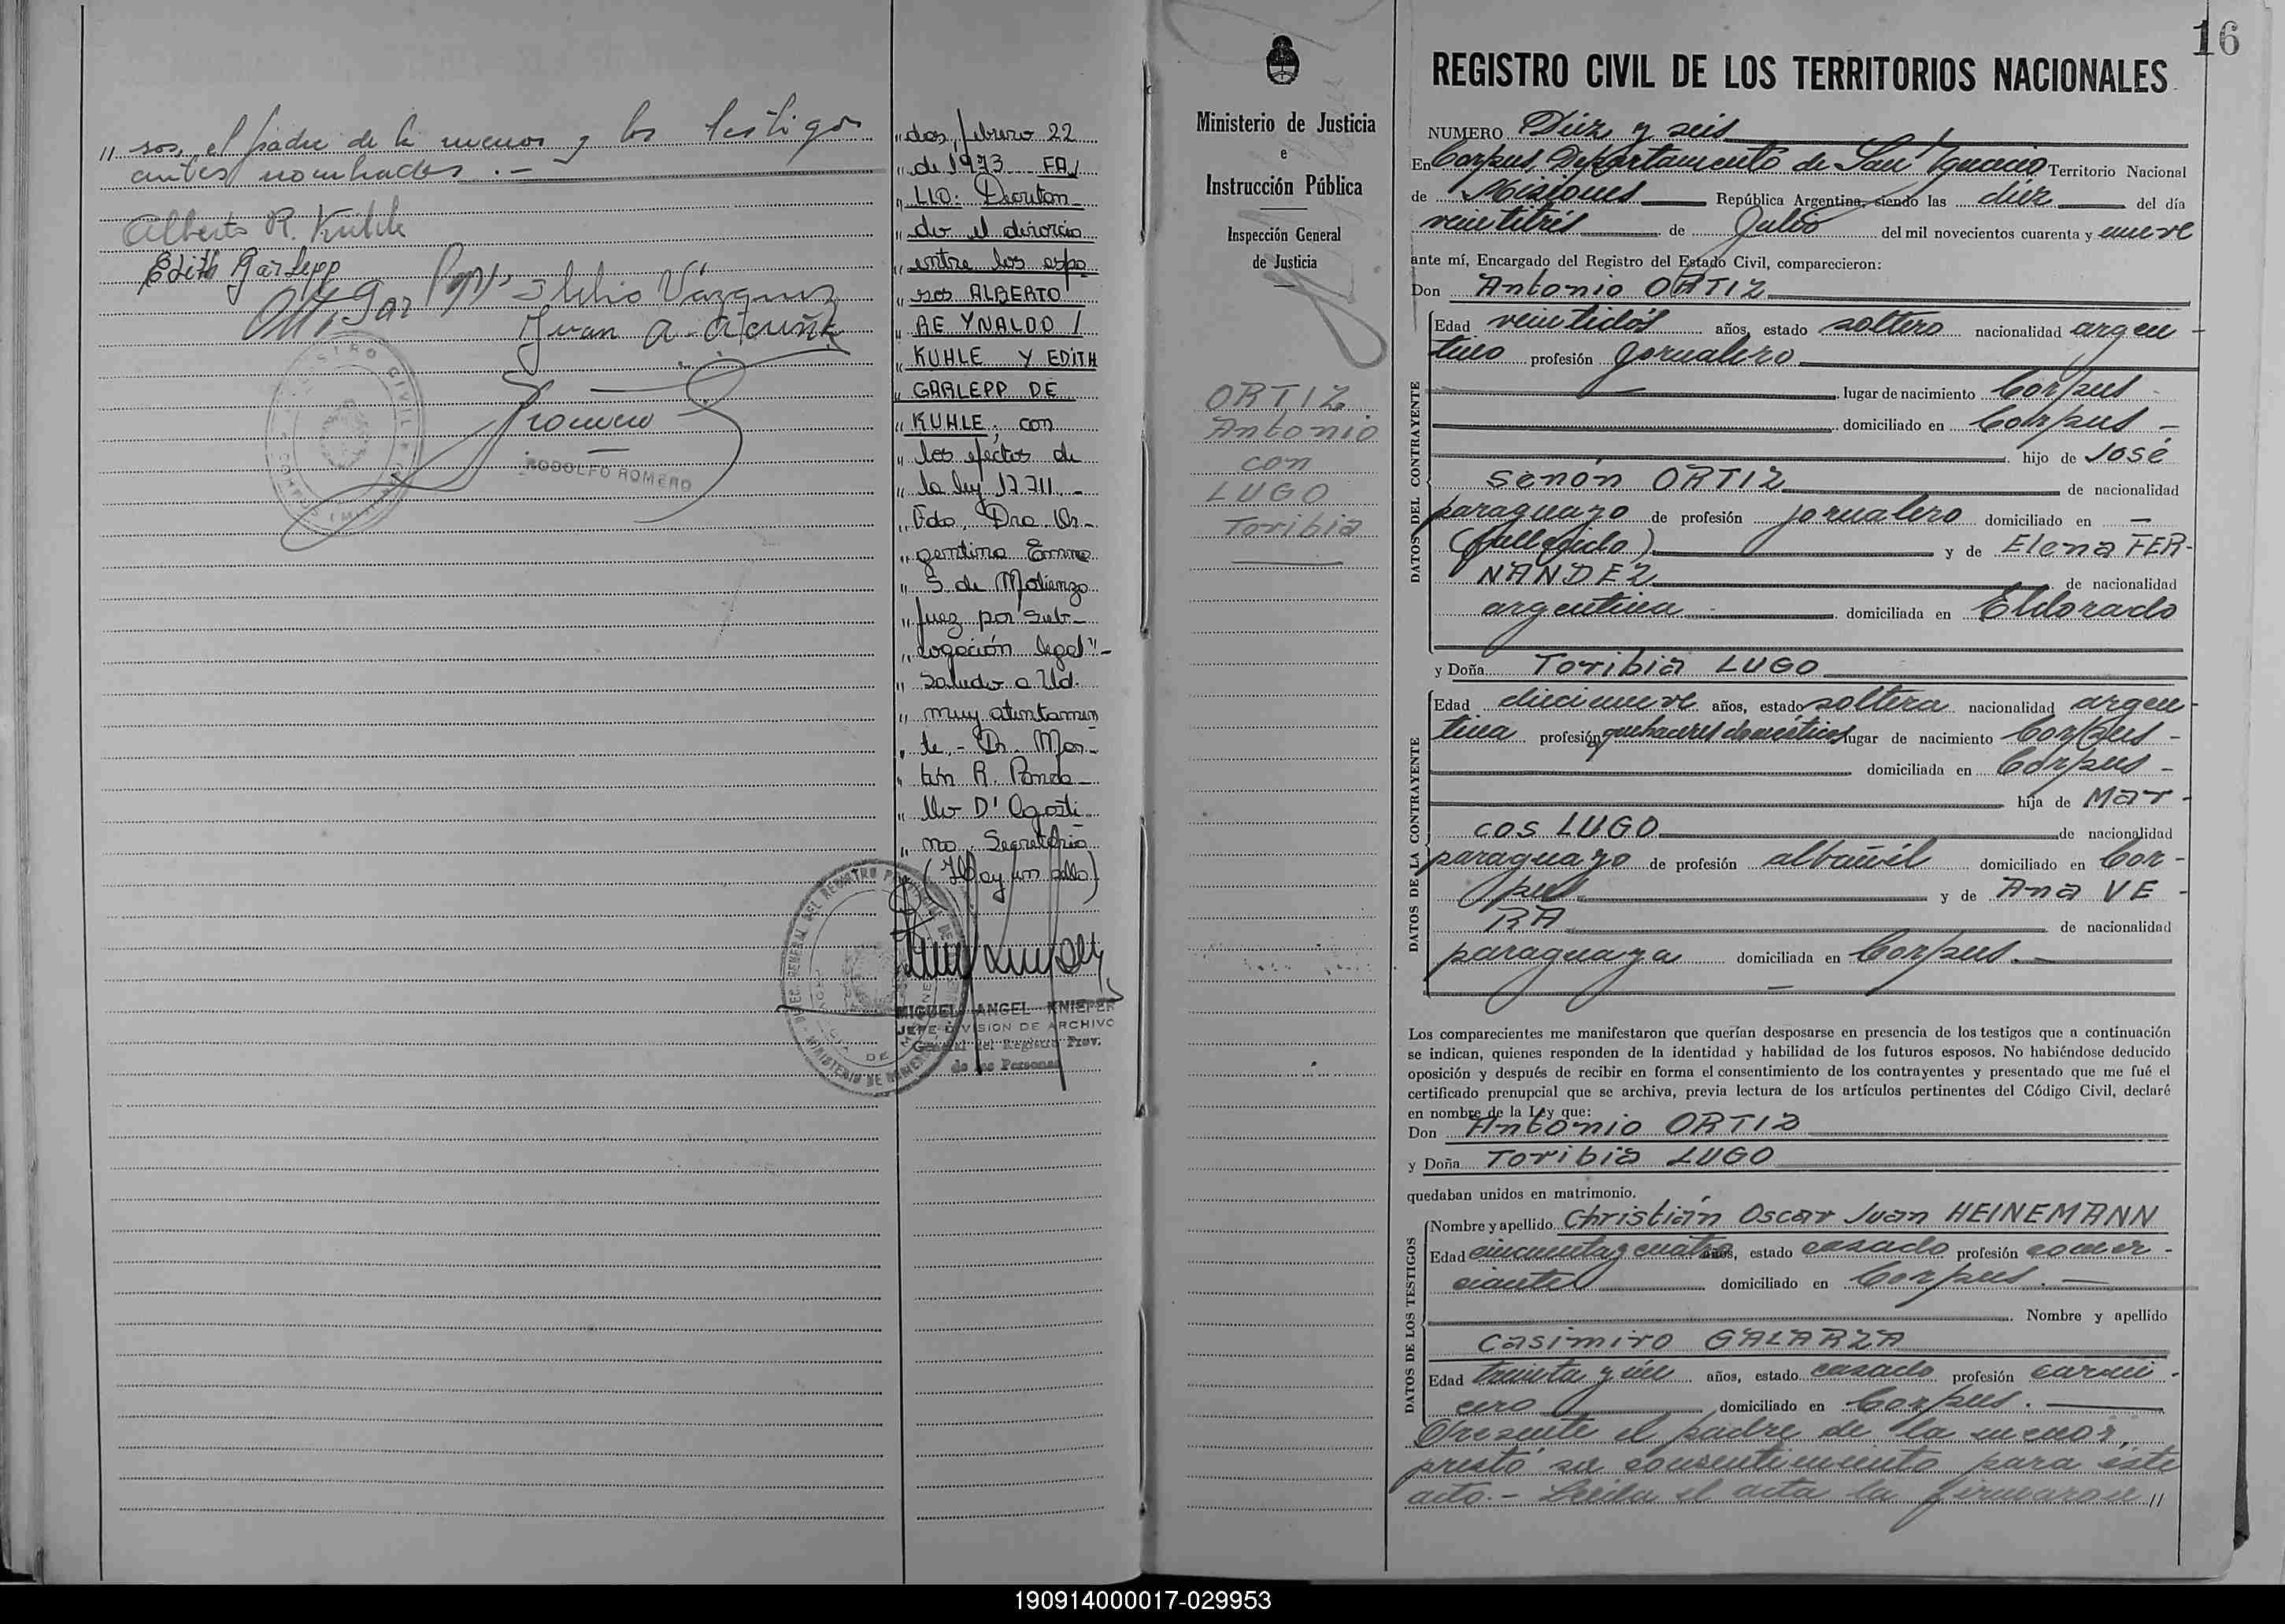 " sos, el padre de la menor y los testigos
antes nombrados.-
Alberto R. Kuhle
Edith Garlepp
Vázquez
Juan A. Acuña
Romero
RODOLFO ROMERO
" dos, febrero 22
" de 1973 FA/
" LLO: Decretan-
" do el divorcio
" entre los espo
" sos ALBERTO
" REYNALDO /
" KUHLE Y EDITH
" GARLEPP DE
" KUHLE, con
" los efectos de
" la ley 17.711.-
" Fdo. Dra Ar-
" gentina Emma
" S. de Matienzo
" Juez por Sub-
" rogación legal"-
" Saludo a Ud.
" muy atentamen
" te.- Dr. Mar-
" tín R.
" llo D'Agosti
" no. Secretario
(Hay un sello)
MIGUEL ANGEL KNIEPER
JEFE DIVISION DE ARCHIVO
General del Registro Prov.
de las Personas
Ministerio de Justicia
e
Instrucción Pública
Inspección General
de Justicia
ORTIZ
Antonio
con
LUGO
Toribia
16
REGISTRO CIVIL DE LOS TERRITORIOS NACIONALES
NUMERO Diez y seis
En Corpus, Departamento de San Ignacio Territorio Nacional
de Misiones República Argentina, siendo las diez del día
veintitrés de Julio del mil novecientos cuarenta y nueve
ante mí, Encargado del Registro del Estado Civil, comparecieron:
Don Antonio ORTIZ
DATOS DEL CONTRAYENTE
Edad veintidós años, estado soltero nacionalidad argen-
tino profesión jornalero
lugar de nacimiento Corpus -
domiciliado en Corpus -
hijo de José
Senón ORTIZ de nacionalidad
paraguayo de profesión jornalero domiciliado en -
(fallecido) y de Elena FER-
NANDEZ de nacionalidad
argentina domiciliada en Eldorado
y Doña Toribia LUGO
DATOS DE LA CONTRAYENTE
Edad diecinueve años, estado soltera nacionalidad argen-
tina profesión quehaceres domésticos lugar de nacimiento Corpus -
domiciliada en Corpus -
hija de Mar-
cos LUGO de nacionalidad
paraguayo de profesión albañil domiciliado en Cor-
pus y de Ana VE-
RA de nacionalidad
paraguaya domiciliada en Corpus.-
Los comparecientes me manifestaron que querían desposarse en presencia de los testigos que a continuación
se indican, quienes responden de la identidad y habilidad de los futuros esposos. No habiéndose deducido
oposición y después de recibir en forma el consentimiento de los contrayentes y presentado que me fué el
certificado prenupcial que se archiva, previa lectura de los artículos pertinentes del Código Civil, declaré
en nombre de la Ley que:
Don Antonio ORTIZ
y Doña Toribia LUGO
quedaban unidos en matrimonio.
DATOS DE LOS TESTIGOS
Nombre y apellido Christián Oscar Juan HEINEMANN
Edad cincuenta y cuatro años, estado casado profesión comer-
ciante domiciliado en Corpus.-
Nombre y apellido
Casimiro GALARZA
Edad treinta y un años, estado casado profesión carni-
cero domiciliado en Corpus.
Presente el padre de la menor,
prestó su consentimiento para éste
acto.- Leída el acta la firmaron //
190914000017-029953